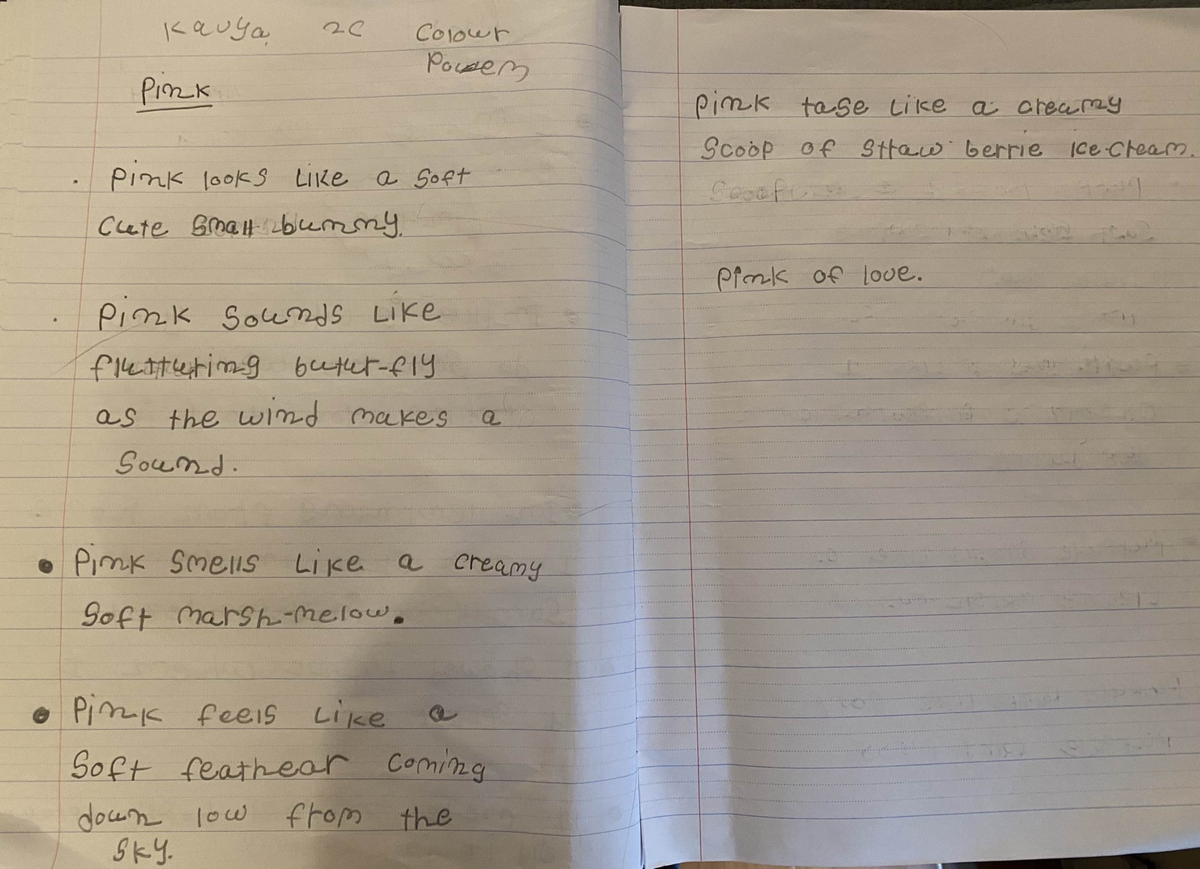 Kavya 2C Colour
Powem
Pink
. Pink looks like a soft
Cute small bunny.
. Pink sounds like
flutturing butur-fly
as the wind makes a
sound.
• Pink smells like a creamy
soft marsh-melow.
• Pink feels like a
soft feathear coming
down low from the
sky.
Pink tase like a creamy
scoop of straw berrie ice-cream.
Pink of love.